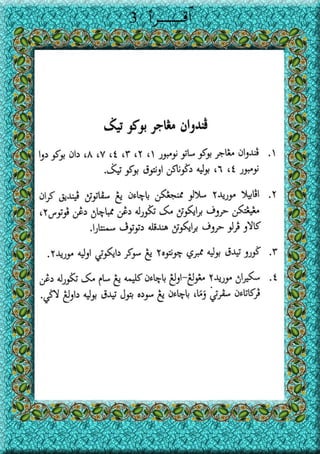 اقــرأ 3
ڤندوان مڠاجر بوكو تيݢ
١. ڤندوان مڠاجر بوكو ساتو نومبور ١، ٢، ٣، ٤، ٧، ٨، دان بوكو دوا
نومبور ٤، ٦، بوليه دݢوناكن اونتوق بوكو تيݢ.
٢. اڤابيلا موريد٢ سلالو ممنجڠكن باچاءن يڠ سڤاتوتڽ ڤينديق كران
مڠيڠتكن حروف برايكوتڽ مک تݢورله دڠن ممباچاڽ دڠن ڤوتوس٢،
كالاو ڤرلو حروف برايكوتڽ هندقله دتوتوڤ سمنتارا.
٣. ݢورو تيدق بوليه ممبري چونتوه٢ يڠ سوكر دايكوتي اوليه موريد٢.
٤. سكيراڽ موريد٢ مڠولڠ-اولڠ باچاءن كليمه يڠ سام مک تݢورله دڠن
ڤركاتاءن سڤرتي وَمَا، باچاءن يڠ سوده بتول تيدق بوليه داولڠ لاݢي.